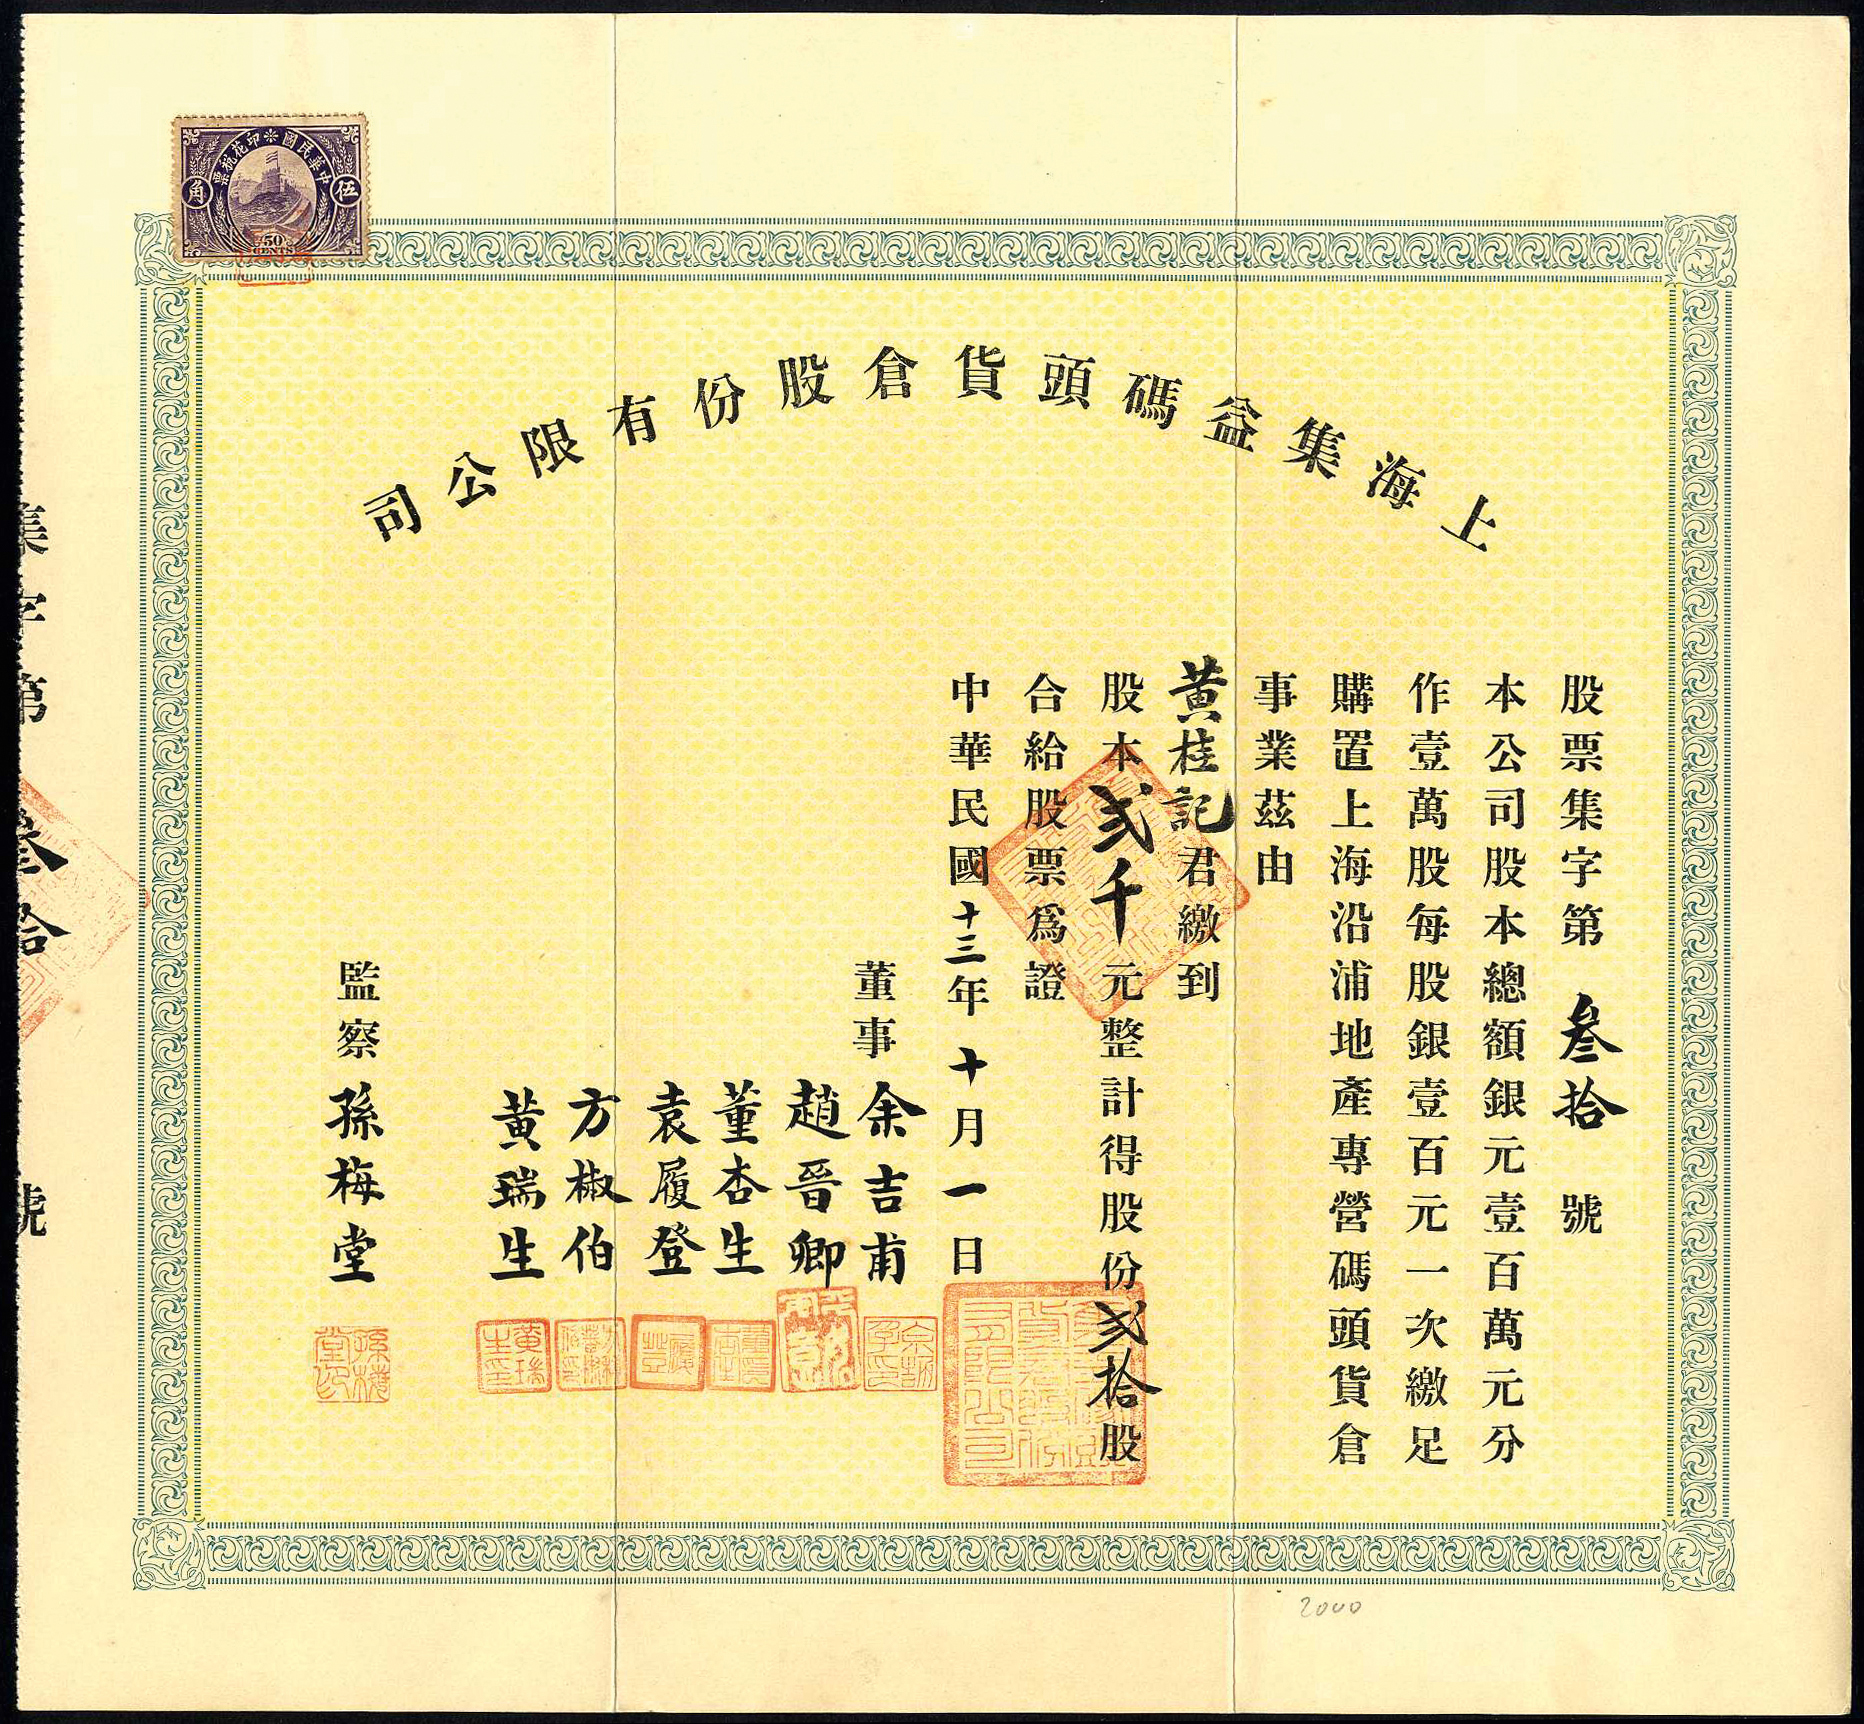 中華民國印花稅票
伍角
50
CENTS
上海集益碼頭貨倉股份有限公司
股票集字第叁拾號
本公司股本總額銀元壹百萬元分
作壹萬股每股銀壹百元一次繳足
購置上海沿浦地產專營碼頭貨倉
事業茲由
黃桂記君繳到
股本弍千元整計得股份弍拾股
合給股票爲證
中華民國十三年十月一日
董事 余吉甫
趙晉卿
董杏生
袁履登
方椒伯
黃瑞生
監察 孫梅堂
黃瑞生印
孫梅堂印
集字第叁拾號
2000